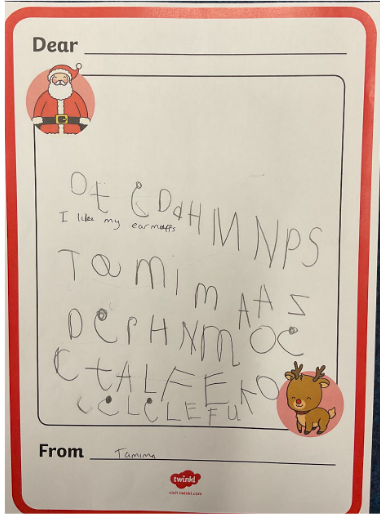 Dear
O t C D d H M N P S
I like my earmuffs
T a m i m A A S
D C P H N M O C
C t A L F E K O
C C L C L E F U
From Tamima
twinkl